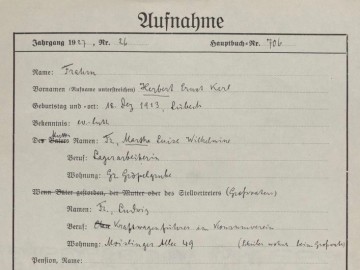 Aufnahme
Jahrgang 1927, Nr. 26 Hauptbuch-Nr. 706
Name: Frahm
Vornamen (Rufname unterstreichen) Herbert Ernst Karl
Geburtstag und -ort: 18. Dez 1913, Lübeck
Bekenntnis: ev.-luth.
Des Vaters Namen: Fr., Martha Luise Wilhelmine
Mutter
Beruf: Lagerarbeiterin
Wohnung: Gr. Gröpelgrube
Wenn Vater gestorben, der Mutter oder des Stellvertreters (Großvaters)
Namen: Fr., Ludwig
Beruf: Kraftwagenführer im Konsumverein
Wohnung: Moislinger Allee 49 (Schüler wohnt beim Großvater)
Pension, Name: